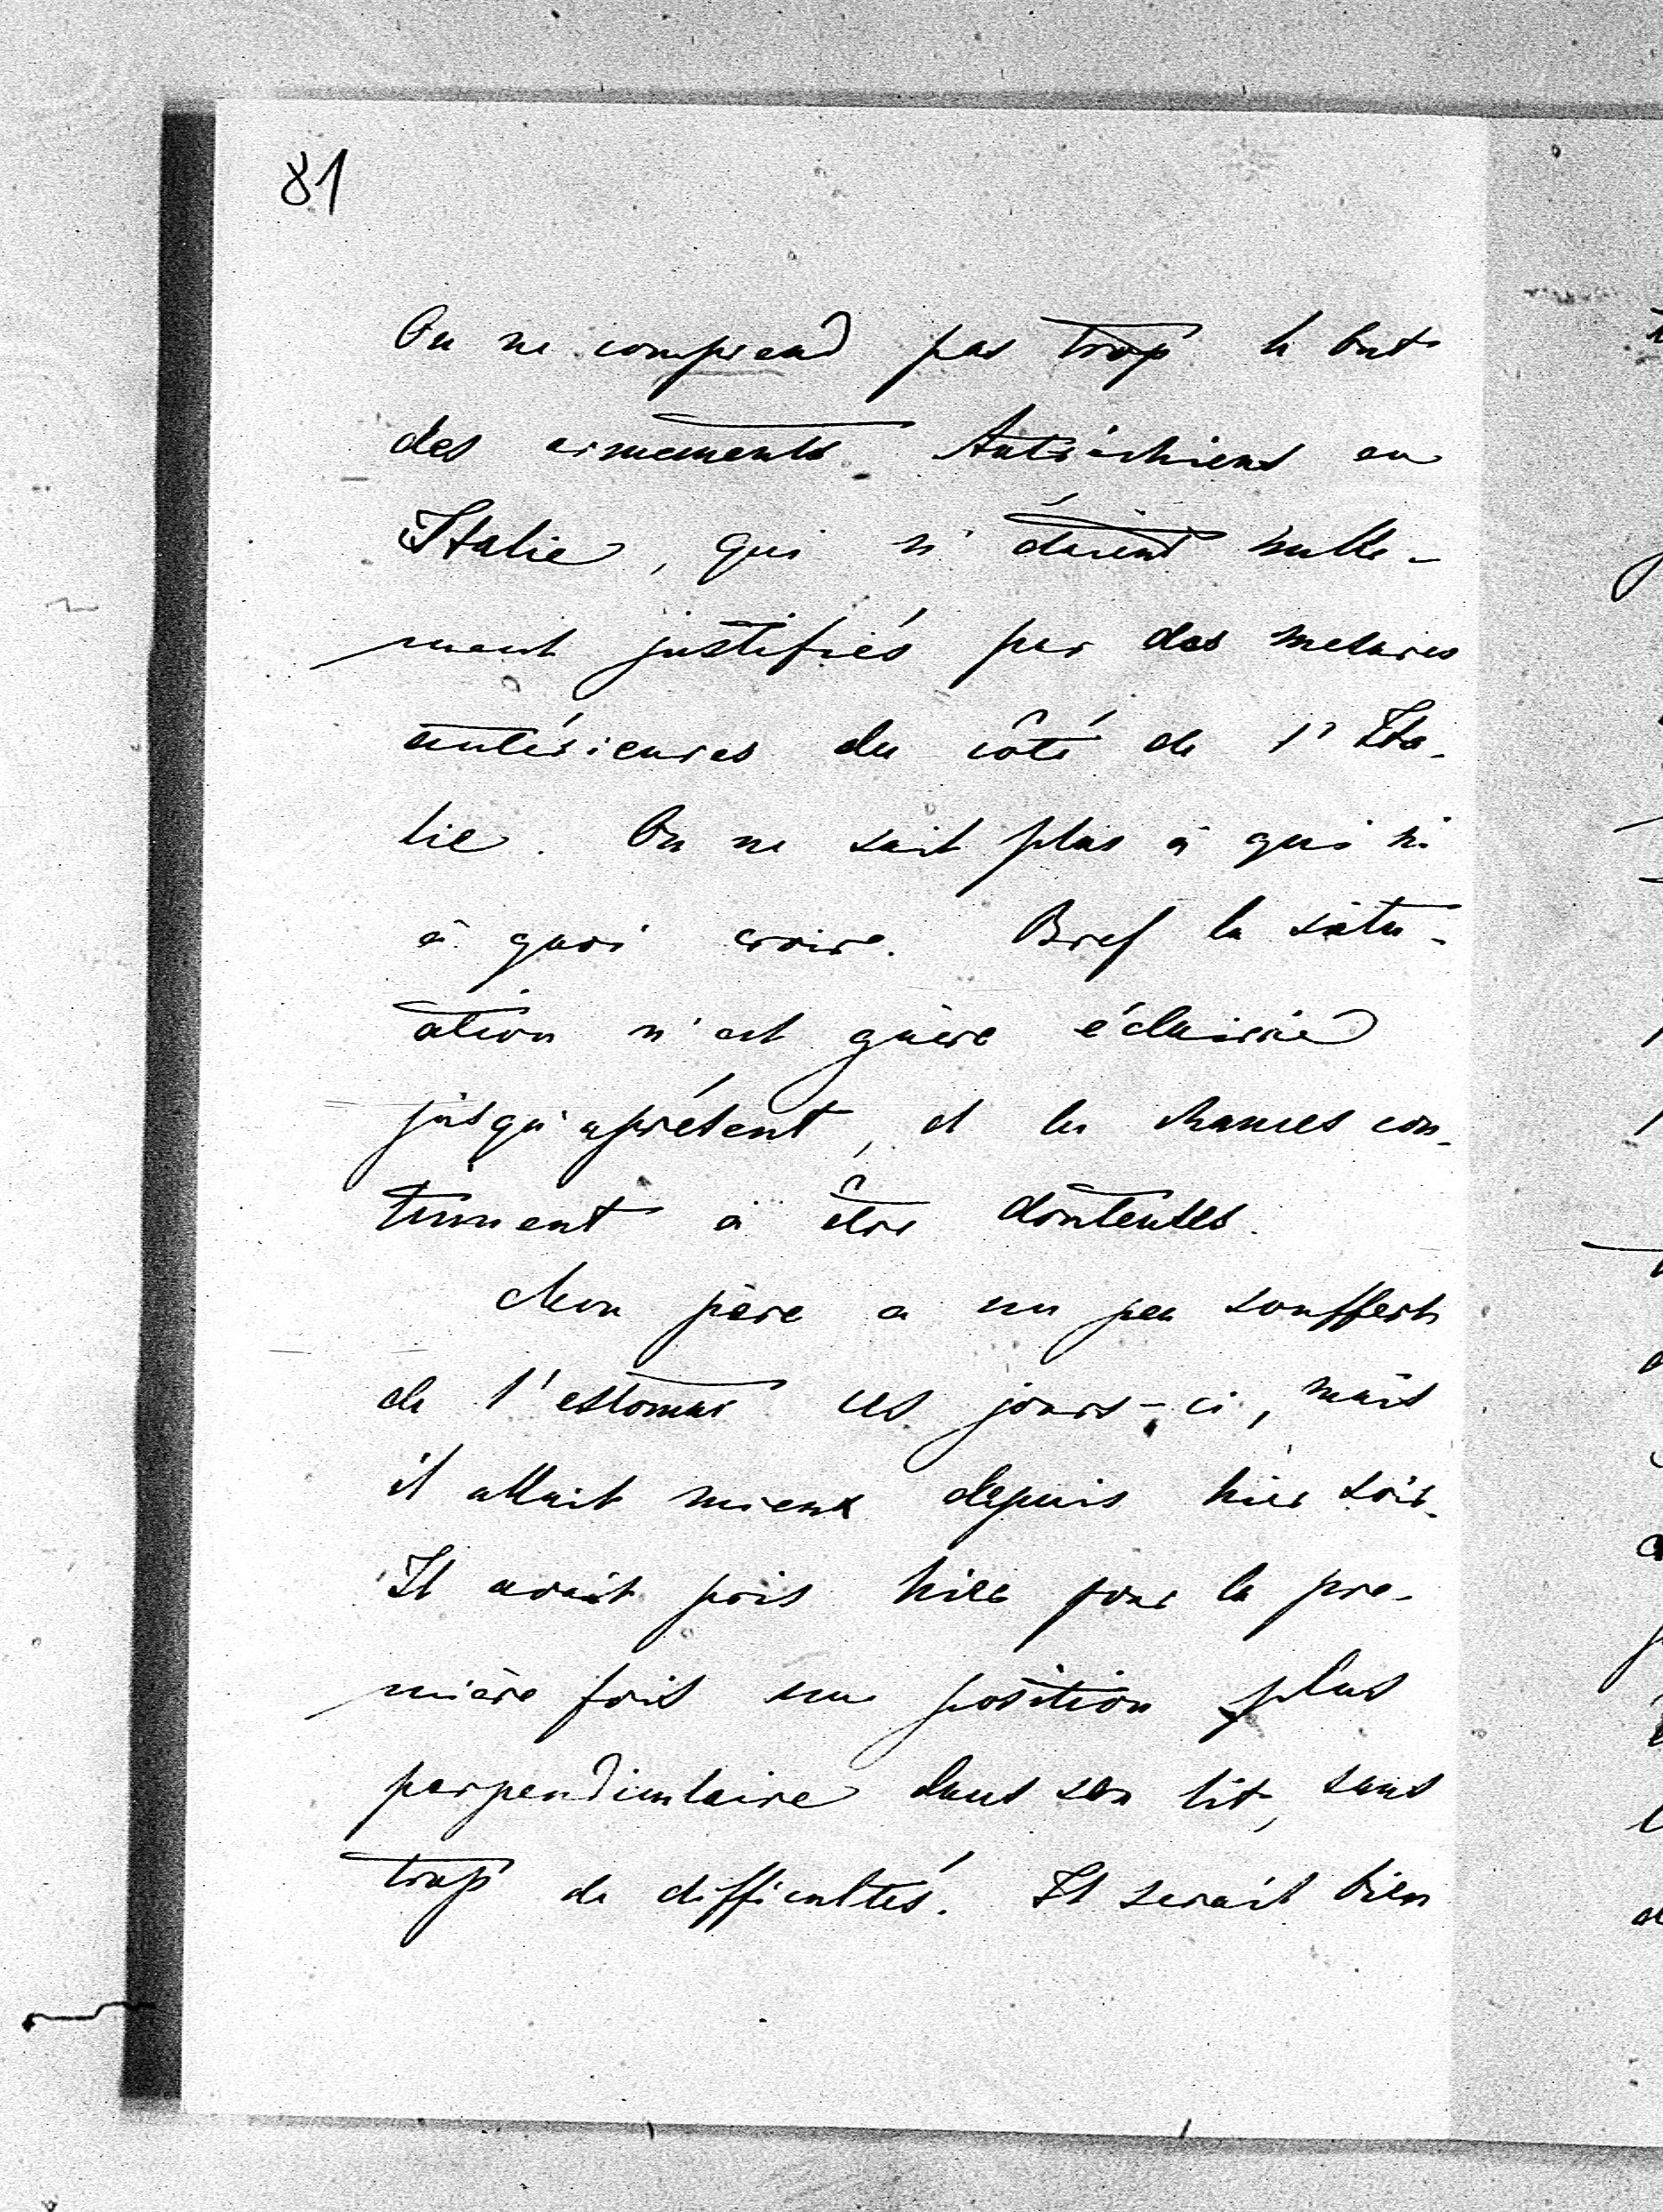 81
On ne comprend pas trop le but
des armements Autrichiens en
Italie, qui n'étaient nulle-
ment justifiés par des mesures
antérieures du côté de l'Ita-
lie. On ne sait plus à qui ni
à quoi croire. Bref la situ-
ation n'est guère éclaircie
jusqu'aprésent, et les chances con-
tinuent à être douteuses.
Mon père a un peu souffert
de l'estomac ces jours-ci, mais
il allait mieux depuis hier soir.
Il avait pris hier pour la pre-
mière fois une position plus
perpendiculaire dans son lit, sans
trop de difficultés. Il serait bien